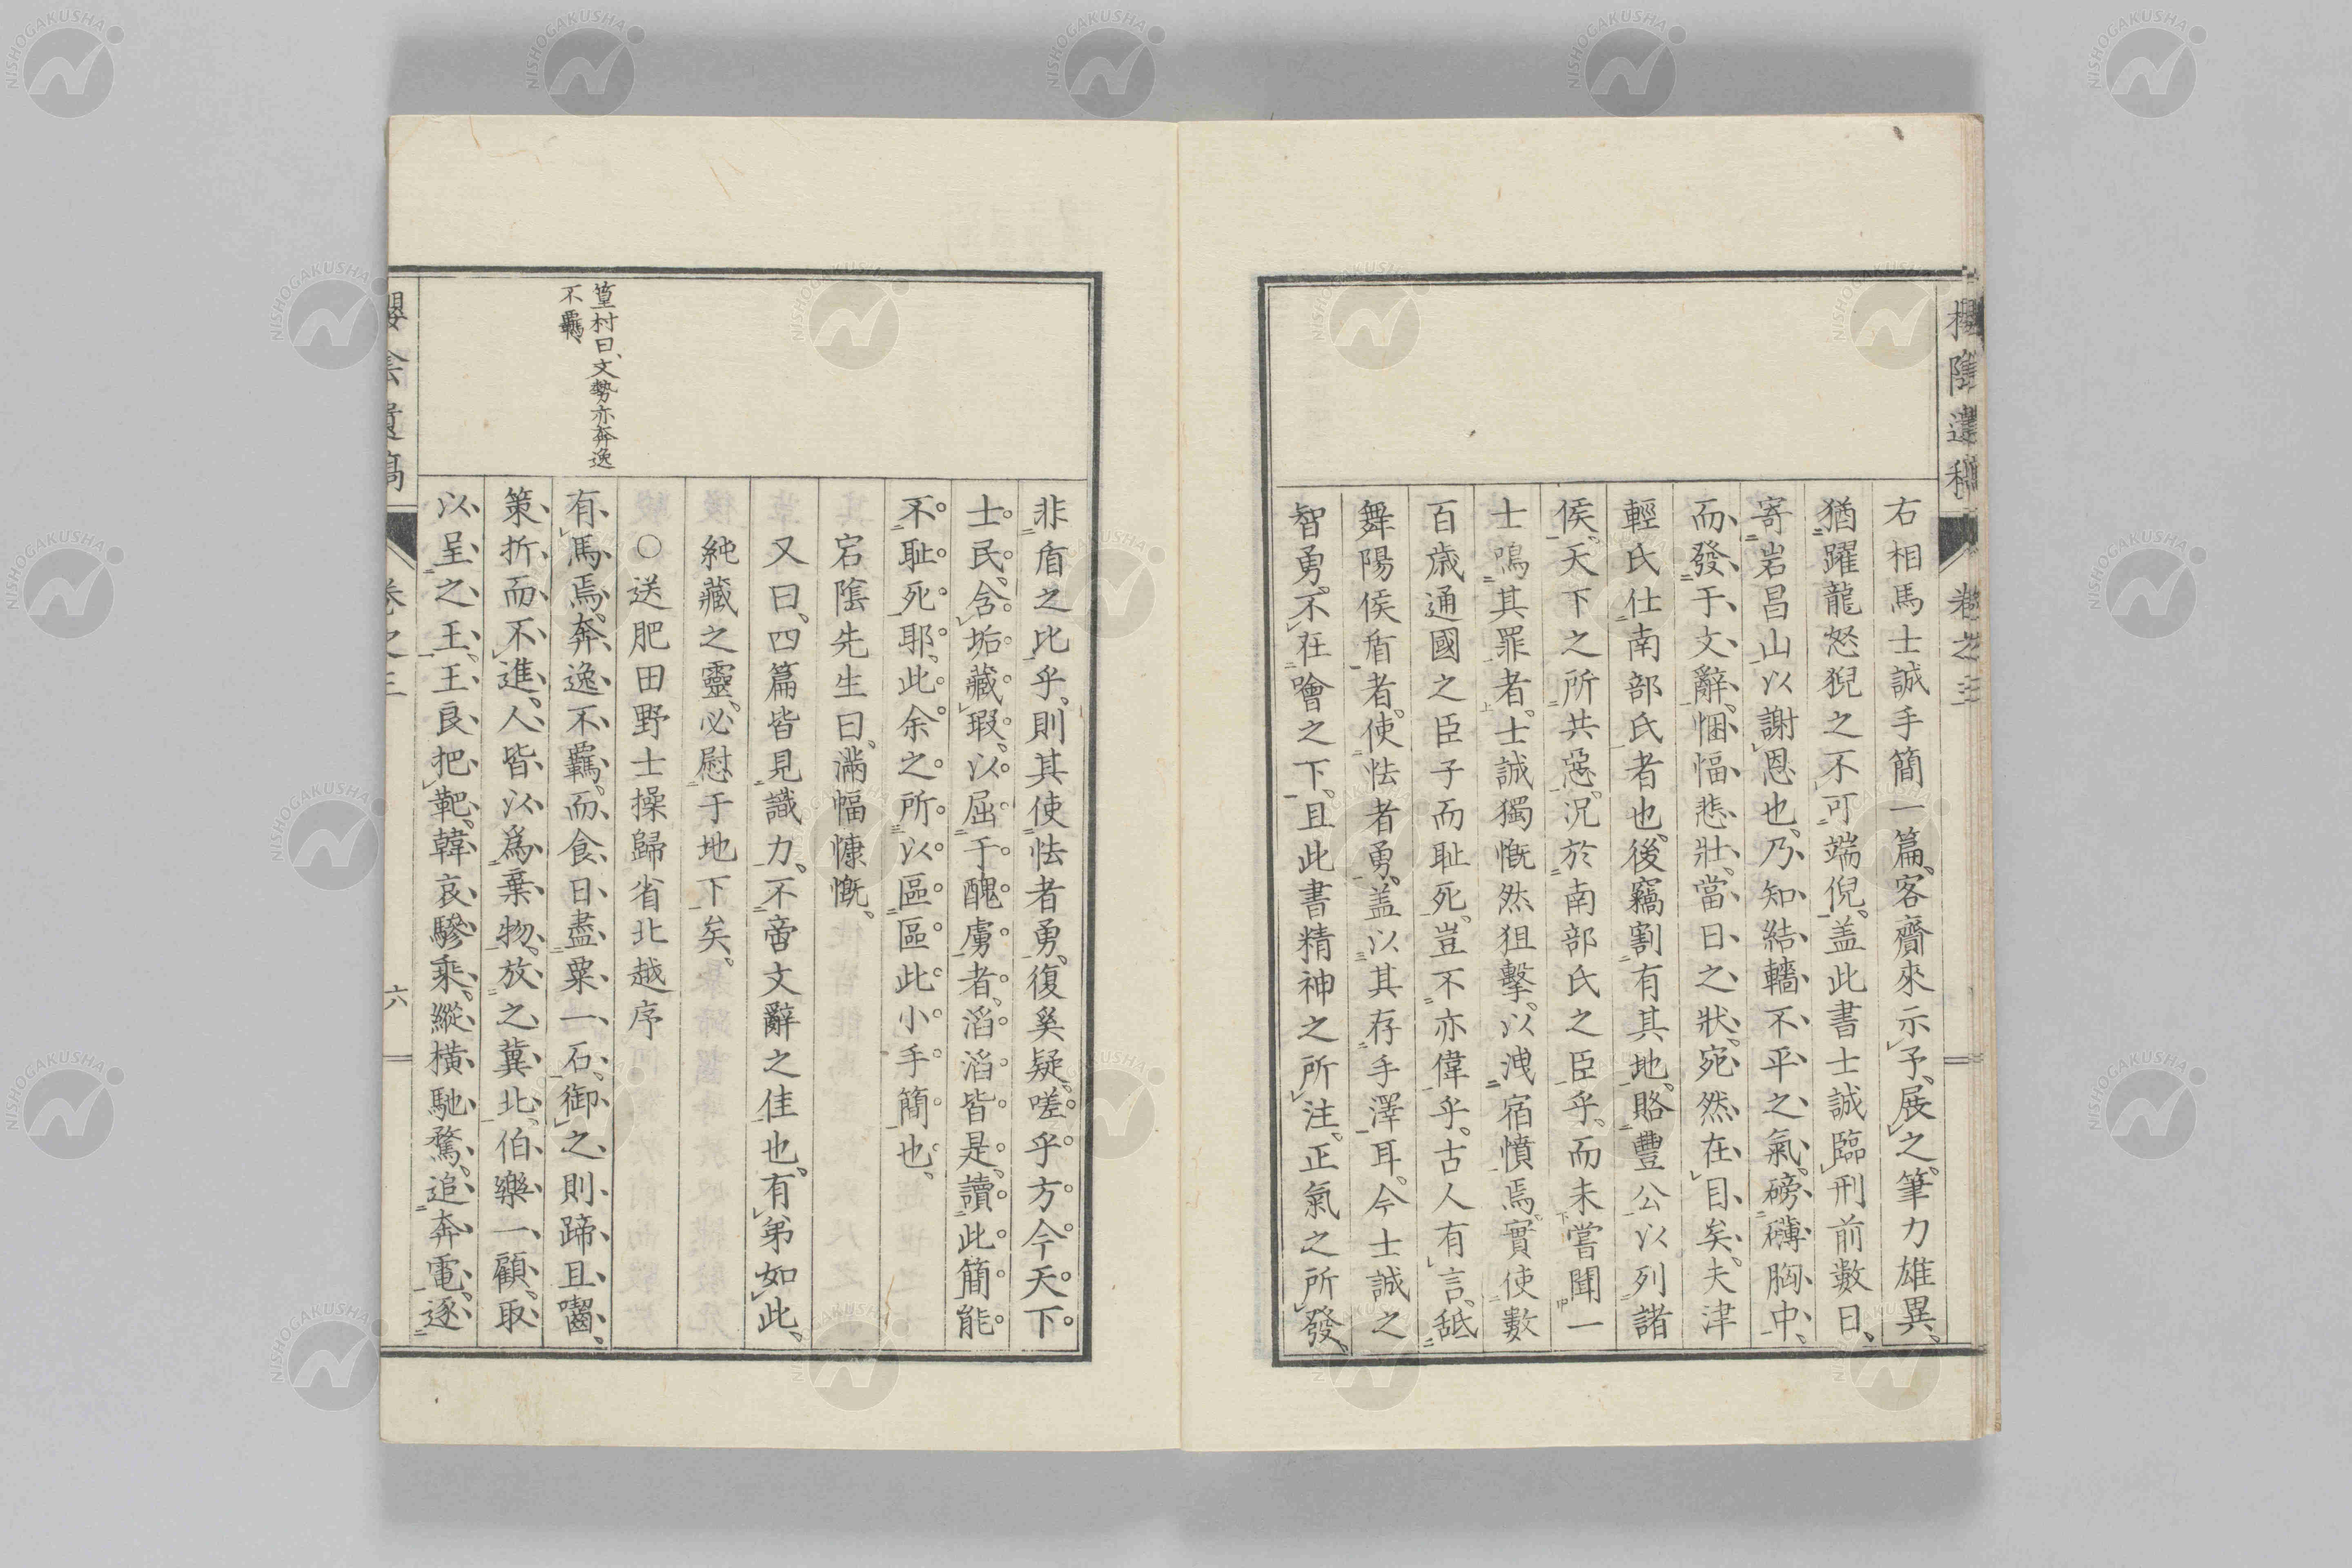 右相馬士誠手簡一篇、客齎來示予、展之、筆力雄異、
猶躍龍怒猊之不可端倪。盖此書士誠臨刑前數日、
寄岩昌山以謝恩也、乃知結轖不平之氣、磅礴胸中、
而發于文辭、悃愊悲壯、當日之狀、宛然在目矣、夫津
輕氏仕南部氏者也、後竊割有其地、賂豐公以列諸
侯、天下之所共惡、況於南部氏之臣乎。而未嘗聞一
士鳴其罪者。士誠獨慨然狙擊、以洩宿憤焉、實使數
百歲通國之臣子而耻死、豈不亦偉乎。古人有言、舐
舞陽侯盾者、使怯者勇、盖以其存手澤耳。今士誠之
智勇、不在噲之下、且此書精神之所注、正氣之所發、
非盾之比乎、則其使怯者勇、復奚疑、嗟乎方今天下
士民、含垢藏瑕、以屈于醜虜者、滔滔皆是、讀此簡能
不耻死耶、此余之所以區區此小手簡也、
宕陰先生曰、滿幅慷慨、
又曰、四篇皆見識力、不啻文辭之佳也、有弟如此、
純藏之靈、必慰于地下矣、
○送肥田野士操歸省北越序
有馬焉、奔逸不羈、而食日盡粟一石、御之則蹄且囓、
策折而不進、人皆以爲棄物、放之冀北、伯樂一顧、取
以呈之王、王良把靶、韓哀驂乘、縱横馳騖、追奔電、逐
篁村曰、文勢亦奔逸
不羈、
卷之三
六